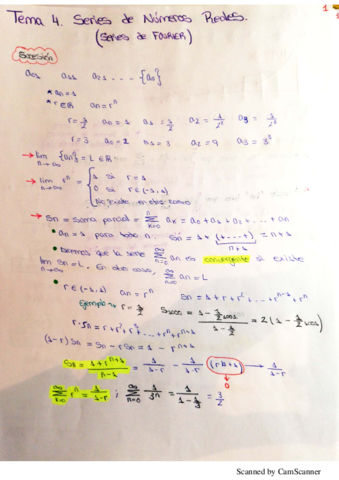 Tema 4. Series de Números Reales.
(Series de FOURIER)
Sucesión
a₀, a₁, a₂, ... {aₙ}
* aₙ = 1
* r ∈ ℝ aₙ = rⁿ
r = 1/2 a₀ = 1 a₁ = 1/2 a₂ = 1/2² a₃ = 1/2³
r = 3 a₀ = 1 a₁ = 3 a₂ = 9 a₃ = 3³
→ lim n→∞ {aₙ} = L ∈ ℝ
→ lim n→∞ rⁿ = { 1 si r = 1
0 si r ∈ (-1,1)
No existe en otro caso
→ Sn = Suma parcial = Σ k=0 n aₖ = a₀ + a₁ + a₂ + ... + an
• an = 1 para todo n Sn = 1 + (+ ... +) = n+1
n+1
• Diremos que la serie Σ n=0 ∞ an es convergente si existe
lim n→∞ Sn = L. En otro caso, Σ n=0 ∞ an = L
• r ∈ (-1,1) an = rⁿ Sn = 1 + r + r² + ... + rⁿ⁻¹ + rⁿ
Ejemplo → r = 1/2
r·Sn = r + r² + r³ + ... + rⁿ + rⁿ⁺¹
(1-r) Sn = Sn - rSn = 1 - rⁿ⁺¹
→ 1/1-r
0
Σ k=0 ∞ rⁿ = 1/1-r ; Σ n=0 ∞ 1/3ⁿ = 1/1-1/3 = 3/2
Scanned by CamScanner